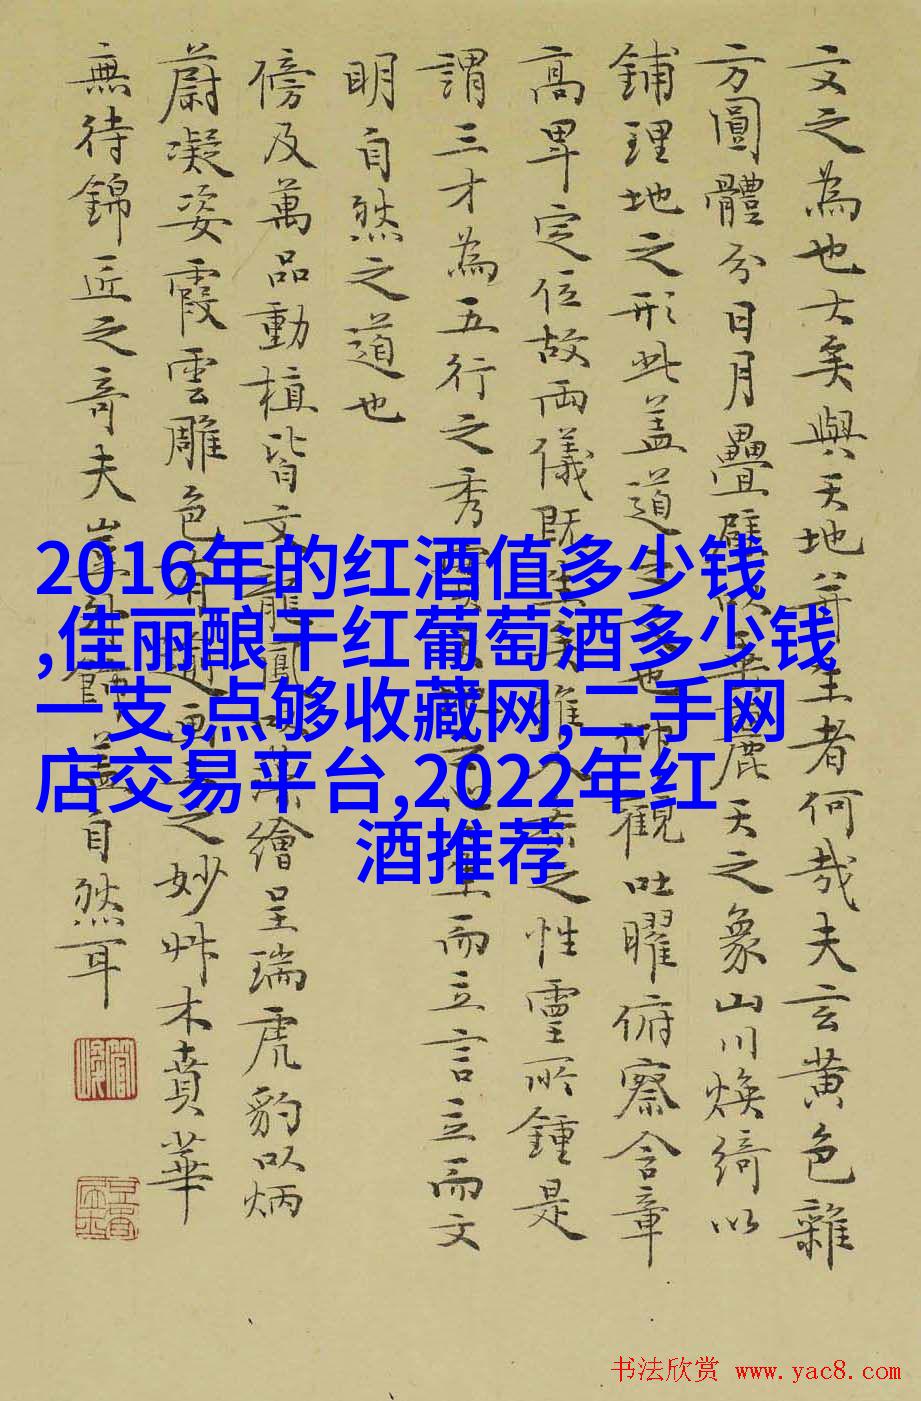 文之為也大矣與天地并生者何哉夫玄黄色雜
方圓體分日月疊璧以垂麗天之象山川煥綺以
鋪理地之形此盖道之也仰觀吐曜俯察含章
高卑定位故兩儀既生矣惟人參之性靈所鍾是
謂三才為五行之秀生而立言立而文
明自然之道也
傍及萬品動植皆文龍鳳以藻繪呈瑞虎豹以炳
蔚凝姿霞雲雕色有踰畫工之妙艸木賁華
無待錦匠之奇夫豈外飾盖自然耳
2016年的红酒值多少钱
,佳丽酿干红葡萄酒多少钱
一支,点够收藏网,二手网
店交易平台,2022年红
酒推荐
书法欣赏 www.yac8.com